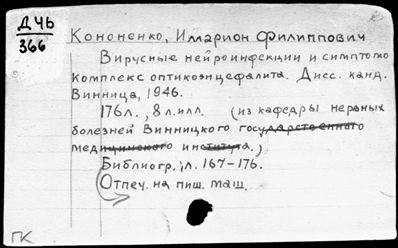 Д Ч6
366
Кононенко, Иларион Филиппович
Вирусные нейроинфекции и симптомо
комплекс оптикоэнцефалита. Дисс. канд.
Винница, 1946.
176 л., 8 л. илл. (из кафедры нервных
болезней Винницкого государственного
медицинского института.)
Библиогр.: л. 167-176.
Отпеч. на пиш. маш.
ПК